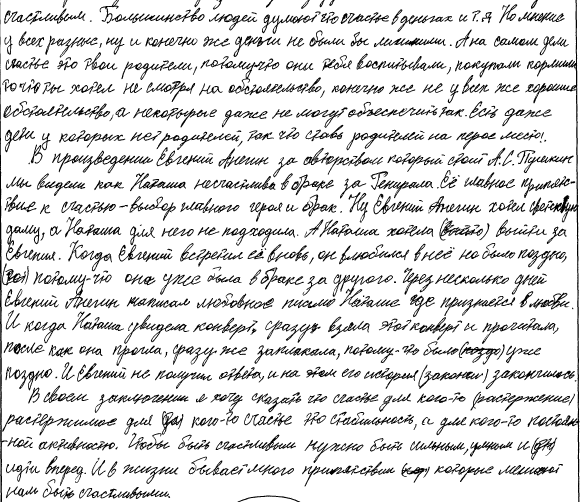 счастливым. Большинство людей думают что счастье в деньгах и т.д. Но мнение
у всех разные, ну и конечно же деньги не были бы лишними. А на самом деле
счастье это твои родители, потомучто они тебя воспитывали, покупали кормили
то что ты хотел не смотря на обстоятельство, конечно же не у всех же хорошие
обстоятельство, а некоторые даже не могут обеспечить так. Есть даже
дети у которых нет родителей, так что ставь родителей на перое место!.
В произведении Евгений Анегин за авторством который стоит А.С. Пушкин
мы видели как Наташа несчастлива в браке за Генерала. Её главное препятс-
твие к счастью - выбор главного героя и брак. Ну Евгений Анегин хотел
даму, а Наташа для него не подходила. А Наташа хотела выйти за
Евгения. Когда Евгений встретил её вновь, он влюбился в неё но было поздно,
потому-что она уже была в браке за другого. Через несколько дней
Евгений Анегин написал любовное письмо Наташе где признаётся в любви.
И когда Наташа увидела конверт, сразу взяла этот конверт и прочитала,
после как она прочла, сразу же заплакала, потому-что было (поздо) уже
поздно. И Евгений не получил ответа, и на этом его история (закончи) закончилась.
В своём заключении я хочу сказать что счастье для кого-то (растержение)
растержимое для кого-то счастье это стабильность, а для кого-то постоян-
-ной активностю. Чтобы быть счастливым нужно быть сильным, умным и
идти вперед. И в жизни бывает много препятствий которые мешают
нам быть счастливыми.